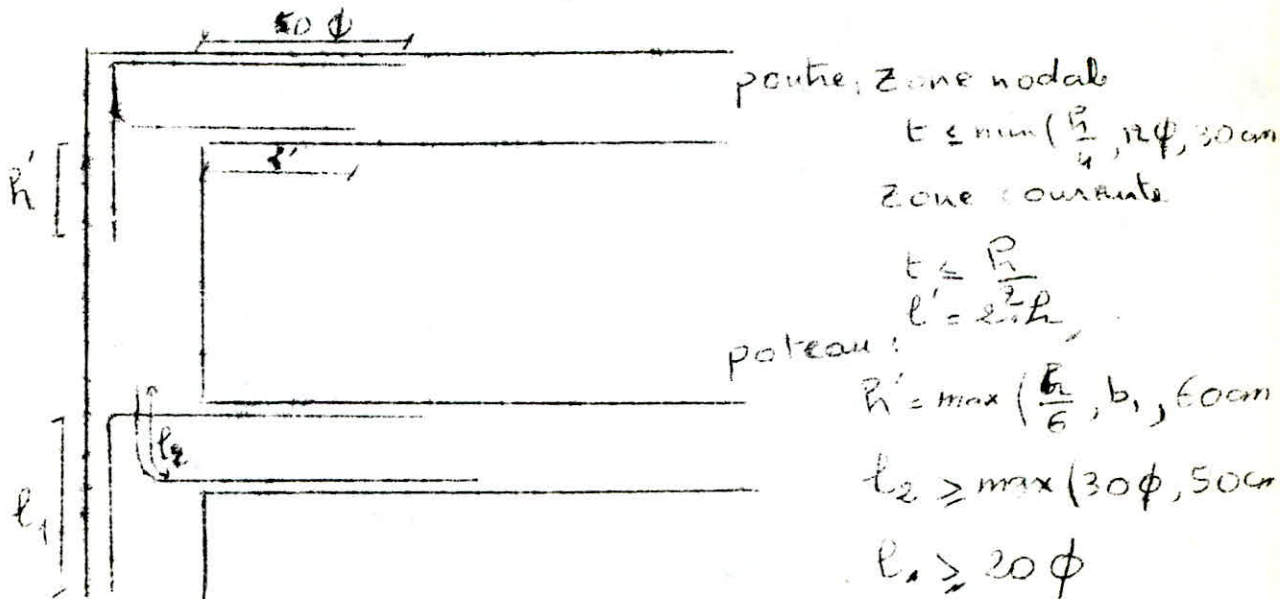 50 ϕ
poutre, zone nodal
t ≤ min(h/4, 12ϕ, 30cm
h'
l'
zone courante
t ≤ h/2
l' = 2.h,
poteau :
h' = max(h/6, b₁, 60cm
l₂
l₂ ≥ max(30ϕ, 50cm
l₁
l₁ ≥ 20ϕ